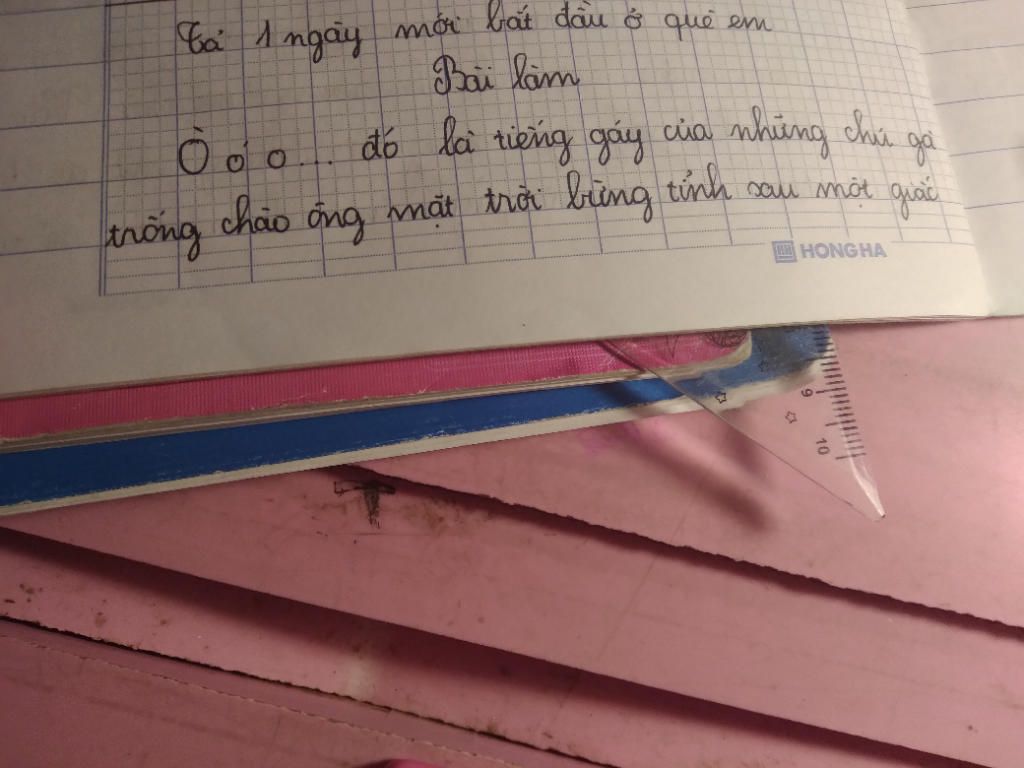 Tả 1 ngày mới bắt đầu ở quê em
Bài làm
Ò ó o... đó là tiếng gáy của những chú gà
trống chào ông mặt trời bừng tỉnh sau một giấc
HONG HA
9
10